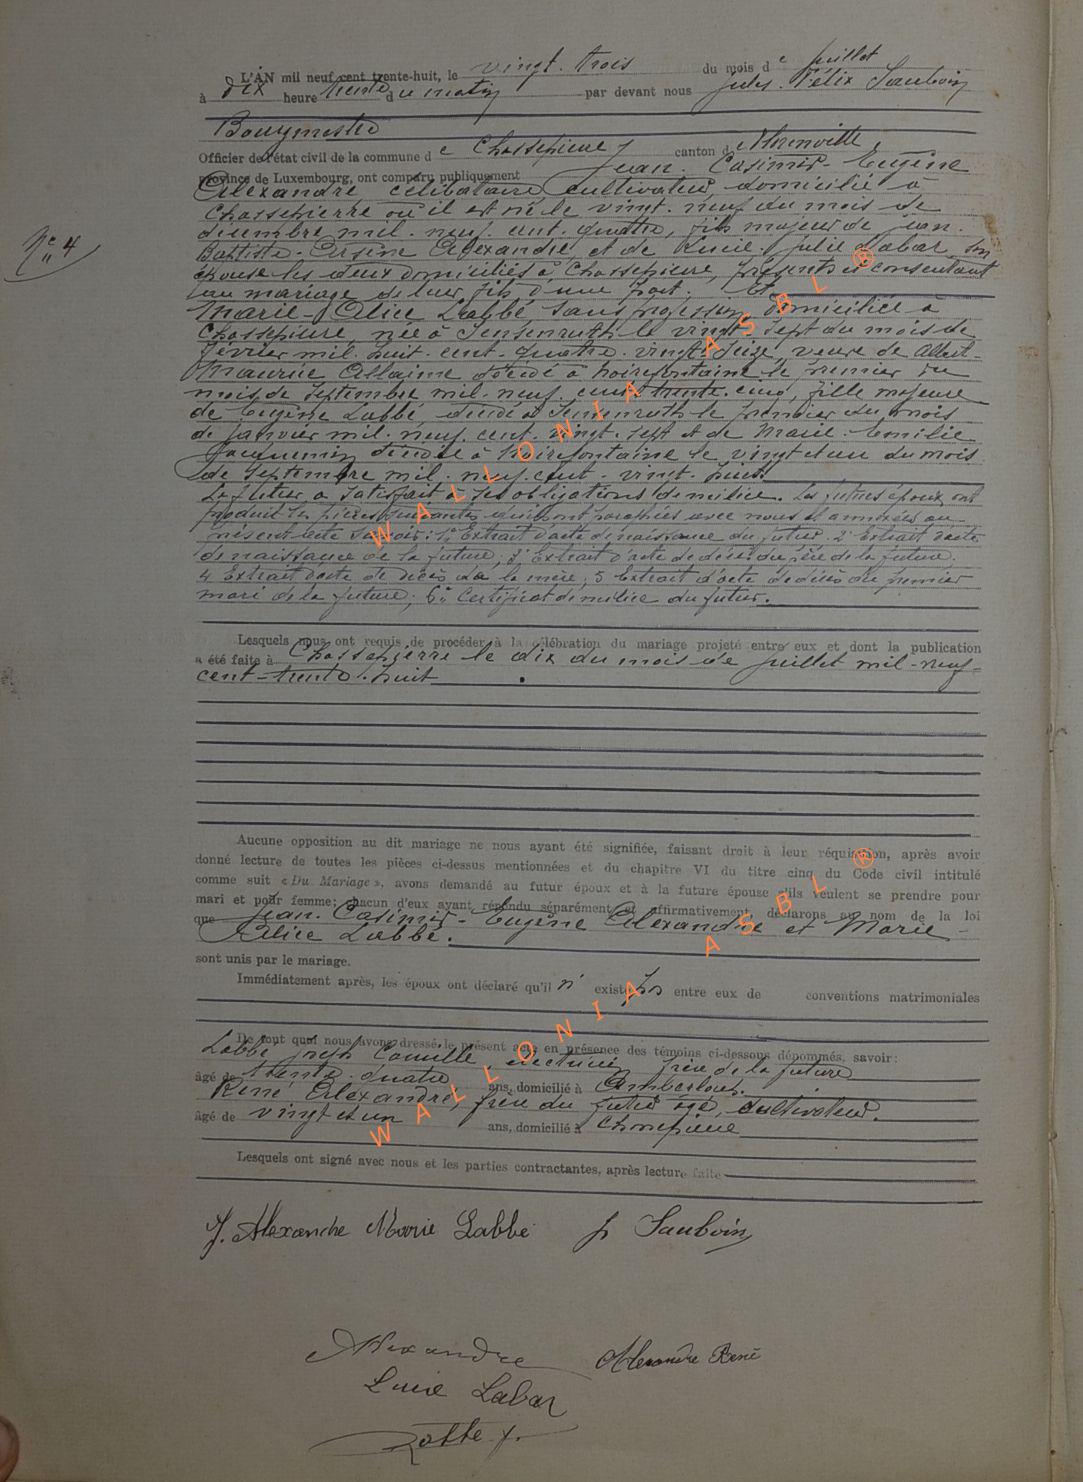 L'AN mil neuf cent trente-huit, le vingt-trois du mois de juillet
à dix heure trente du matin par devant nous Jules-Félix Sauboin
Bourgmestre
Officier de l'état civil de la commune de Chassepierre canton de Florenville,
province de Luxembourg, ont comparu publiquement Jean-Casimir-Eugène
Alexandre célibataire cultivateur domicilié à
Chassepierre où il est né le vingt-neuf du mois de
décembre mil-neuf-cent-quatre, fils majeur de Jean-
Baptiste-Arsène Alexandre, et de Lucie-Julie Labar, son
épouse les deux domiciliés à Chassepierre, présents et consentant
au mariage de leur fils d'une part. Et
Marie-Alice Labbé sans profession, domiciliée à
Chassepierre, née à Sensenruth le vingt-sept du mois de
février mil-huit-cent-quatre-vingt-seize, veuve de Albert-
Maurice Allaime décédé à Noirefontaine le premier du
mois de septembre mil-neuf-cent-trente-cinq, fille majeure
de Eugène Labbé, décédé à Sensenruth le premier du mois
de janvier mil-neuf-cent-vingt-sept et de Marie-Emilie
Jacquemin décédée à Noirefontaine le vingt et un du mois
de septembre mil-neuf-cent-vingt-huit.
Le futur a satisfait à ses obligations de milice. Les futurs époux ont
produit les pièces suivantes qu'ils ont paraphées avec nous et annexées au
présent acte savoir: 1° Extrait d'acte de naissance du futur. 2° Extrait d'acte
de naissance de la future; 3° Extrait d'acte de décès du père de la future.
4 Extrait d'acte de décès de la mère; 5 Extrait d'acte de décès du premier
mari de la future; 6° Certificat de milice du futur.
N° 4
Lesquels nous ont requis de procéder à la célébration du mariage projeté entre eux et dont la publication
a été faite à Chassepierre le dix du mois de juillet mil-neuf-
cent-trente-huit
Aucune opposition au dit mariage ne nous ayant été signifiée, faisant droit à leur réquisition, après avoir
donné lecture de toutes les pièces ci-dessus mentionnées et du chapitre VI du titre cinq du Code civil intitulé
comme suit « Du Mariage », avons demandé au futur époux et à la future épouse s'ils veulent se prendre pour
mari et pour femme; chacun d'eux ayant répondu séparément et affirmativement, déclarons au nom de la loi
que Jean-Casimir-Eugène Alexandre et Marie-
Alice Labbé.
sont unis par le mariage.
Immédiatement après, les époux ont déclaré qu'il n' existe pas entre eux de conventions matrimoniales
De tout quoi nous avons dressé le présent acte en présence des témoins ci-dessous dénommés, savoir:
Labbé Joseph Camille, électricien, frère de la future
âgé de trente-quatre ans, domicilié à Amberloup.
René Alexandre, frère du futur âgé, cultivateur.
âgé de vingt et un ans, domicilié à Chassepierre
Lesquels ont signé avec nous et les parties contractantes, après lecture faite
J. Alexandre Marie Labbé J Sauboin
Alexandre Alexandre René
Lucie Labar
WALLONIA ASBL ®
WALLONIA ASBL ®